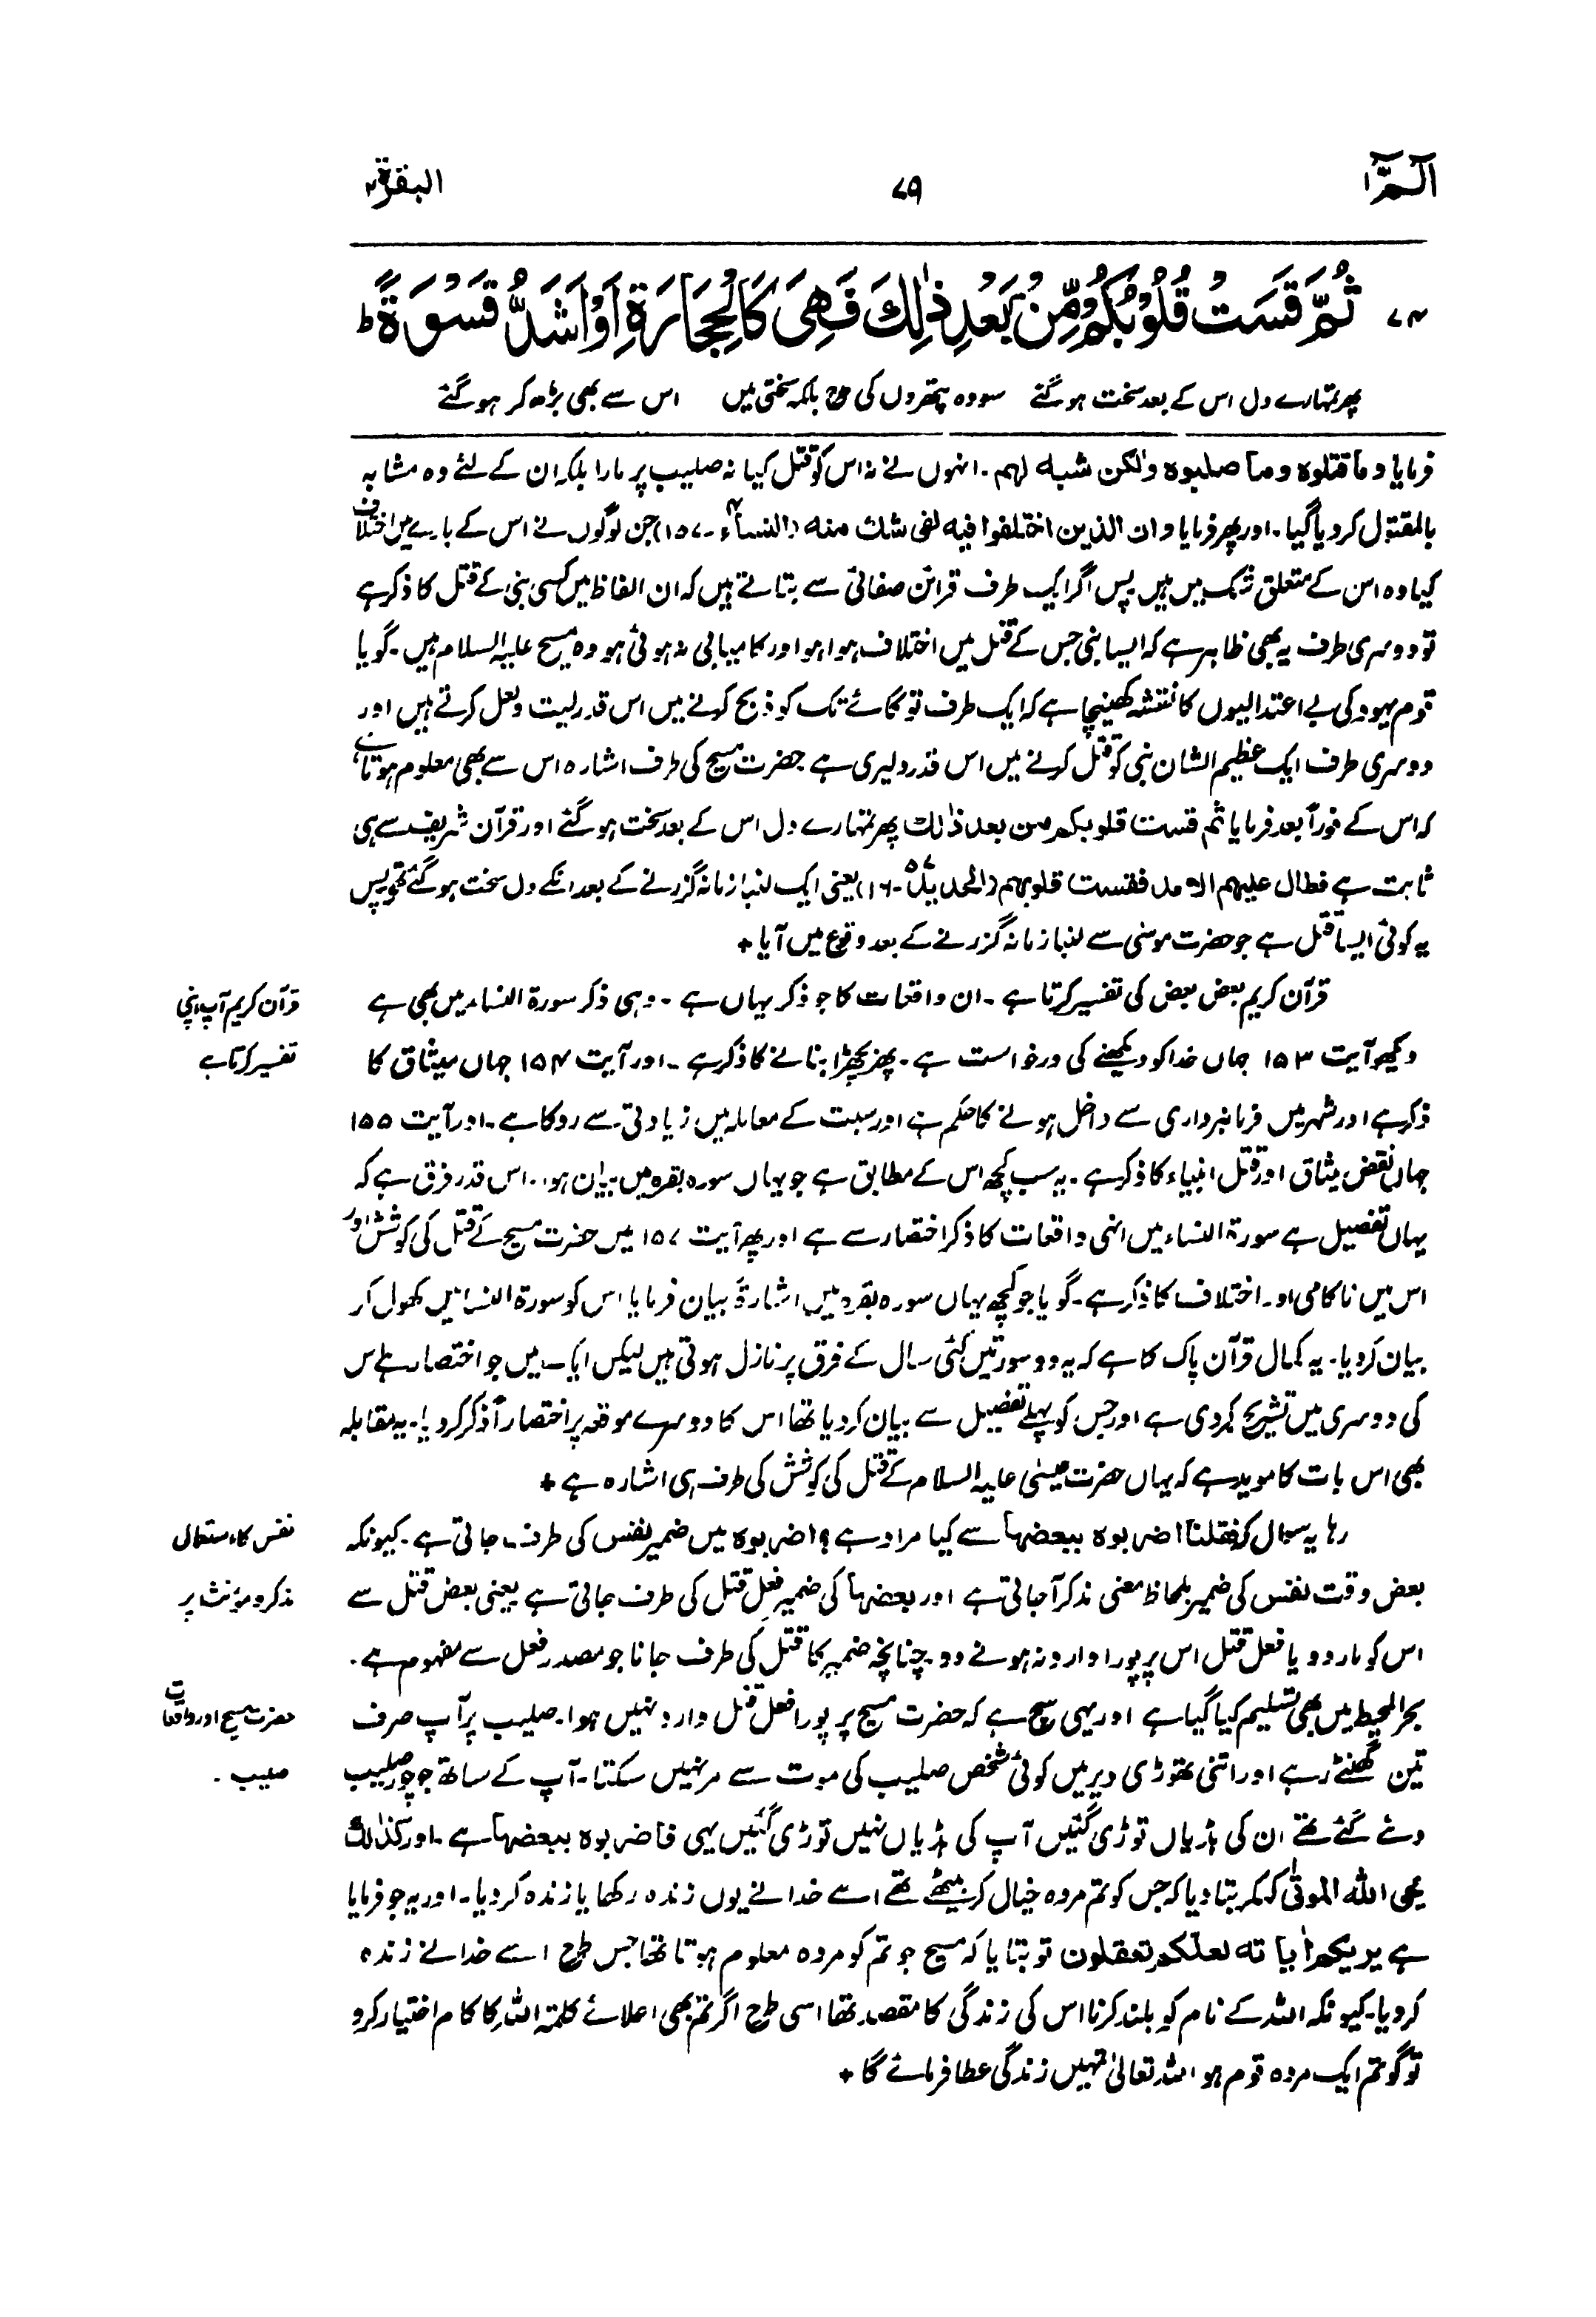 الٓمّٓ ۱
۷۹
البقرۃ ۲
۷۴ ثُمَّ قَسَتْ قُلُوْبُكُمْ مِّنْۢ بَعْدِ ذٰلِكَ فَهِىَ كَالْحِجَارَةِ اَوْ اَشَدُّ قَسْوَةً ؕ
پھر تمہارے دل اس کے بعد سخت ہو گئے سو وہ پتھروں کی طرح بلکہ سختی میں اس سے بھی بڑھ کر ہو گئے
فرمایا وما قتلوہ وما صلبوہ ولٰکن شبہ لہم۔ انہوں نے نہ اس کو قتل کیا نہ صلیب پر مارا بلکہ ان کے لئے وہ مشابہ
بالمقتول کر دیا گیا۔ اور پھر فرمایا وان الذین اختلفوا فیہ لفی شک منہ (النساء۴۔۱۵۷) جن لوگوں نے اس کے بارے میں اختلاف
کیا وہ اس کے متعلق شک میں ہیں پس اگر ایک طرف قرائن صفائی سے بتاتے ہیں کہ ان الفاظ میں کسی نبی کے قتل کا ذکر ہے
تو دوسری طرف یہ بھی ظاہر ہے کہ ایسا نبی جس کے قتل میں اختلاف ہوا ہو اور کامیابی نہ ہوئی ہو وہ مسیح علیہ السلام ہیں۔ گویا
قوم یہود کی بے اعتدالیوں کا نقشہ کھینچا ہے کہ ایک طرف تو گائے تک کو ذبح کرنے میں اس قدر لیت ولعل کرتے ہیں اور
دوسری طرف ایک عظیم الشان نبی کو قتل کرنے میں اس قدر دلیری ہے حضرت مسیح کی طرف اشارہ اس سے بھی معلوم ہوتا ہے
کہ اس کے فوراً بعد فرمایا ثم قست قلوبکم من بعد ذٰلک پھر تمہارے دل اس کے بعد سخت ہو گئے اور قرآن شریف سے ہی
ثابت ہے فطال علیہم الامد فقست قلوبہم (الحدید۵۷۔۱۶) یعنی ایک لنبا زمانہ گزرنے کے بعد انکے دل سخت ہو گئے تھے پس
یہ کوئی ایسا قتل ہے جو حضرت موسٰی سے لنبا زمانہ گزرنے کے بعد وقوع میں آیا +
قرآن کریم آپ اپنی
تفسیر کرتا ہے
قرآن کریم بعض بعض کی تفسیر کرتا ہے۔ ان واقعات کا جو ذکر یہاں ہے۔ وہی ذکر سورۃ النساء میں بھی ہے
دیکھو آیت ۱۵۳ جہاں خدا کو دیکھنے کی درخواست ہے۔ پھر بچھڑا بنانے کا ذکر ہے۔ اور آیت ۱۵۴ جہاں میثاق کا
ذکر ہے اور شہر میں فرمانبرداری سے داخل ہونے کا حکم ہے اور سبت کے معاملہ میں زیادتی سے روکا ہے۔ اور آیت ۱۵۵
جہاں نقض میثاق اور قتل انبیاء کا ذکر ہے۔ یہ سب کچھ اس کے مطابق ہے جو یہاں سورہ بقرہ میں بیان ہوا۔ اس قدر فرق ہے کہ
یہاں تفصیل ہے سورۃ النساء میں انہی واقعات کا ذکر اختصار سے ہے اور پھر آیت ۱۵۷ میں حضرت مسیح کے قتل کی کوشش اور
اس میں ناکامی اور اختلاف کا ذکر ہے۔ گویا جو کچھ یہاں سورہ بقرہ میں اشارۃً بیان فرمایا اس کو سورۃ النساء میں کھول کر
بیان کر دیا۔ یہ کمال قرآن پاک کا ہے کہ یہ دو سورتیں کئی سال کے فرق پر نازل ہوتی ہیں لیکن ایک میں جو اختصار ہے اس
کی دوسری میں تشریح کر دی ہے اور جس کو پہلے تفصیل سے بیان کر دیا تھا اس کا دوسرے موقعہ پر اختصاراً ذکر کر دیا۔ یہ مقابلہ
بھی اس بات کا موید ہے کہ یہاں حضرت عیسٰی علیہ السلام کے قتل کی کوشش کی طرف ہی اشارہ ہے +
نفس کا استعمال
مذکر و مؤنث پر
رہا یہ سوال کہ فقلنا اضربوہ ببعضہا سے کیا مراد ہے؟ اضربوہ میں ضمیر نفس کی طرف جاتی ہے۔ کیونکہ
بعض وقت نفس کی ضمیر بلحاظ معنی مذکر آ جاتی ہے اور بعضہا کی ضمیر فعل قتل کی طرف جاتی ہے یعنی بعض قتل سے
اس کو مار دو یا فعل قتل اس پر پورا وارد نہ ہونے دو۔ چنانچہ ضمیر کا قتل کی طرف جانا جو مصدر فعل سے مفہوم ہے۔
حضرت مسیح اور واقعات
صلیب۔
بحر المحیط میں بھی تسلیم کیا گیا ہے اور یہی سچ ہے کہ حضرت مسیح پر پورا فعل قتل وارد نہیں ہوا۔ صلیب پر آپ صرف
تین گھنٹے رہے اور اتنی تھوڑی دیر میں کوئی شخص صلیب کی موت سے مر نہیں سکتا۔ آپ کے ساتھ جو چور صلیب
دئے گئے تھے ان کی ہڈیاں توڑی گئیں آپ کی ہڈیاں نہیں توڑی گئیں یہی فاضربوہ ببعضہا ہے۔ اور کذٰلک
یحی اللہ الموتٰی کہکر بتا دیا کہ جس کو تم مردہ خیال کر بیٹھے تھے اسے خدا نے یوں زندہ رکھا یا زندہ کر دیا۔ اور یہ جو فرمایا
ہے یریکم اٰیاتہ لعلکم تعقلون تو بتایا کہ مسیح جو تم کو مردہ معلوم ہوتا تھا جس طرح اسے خدا نے زندہ
کر دیا۔ کیونکہ اللہ کے نام کو بلند کرنا اس کی زندگی کا مقصد تھا اسی طرح اگر تم بھی اعلائے کلمۃ اللہ کا کام اختیار کرو
تو گو تم ایک مردہ قوم ہو اللہ تعالٰی تمہیں زندگی عطا فرمائے گا +